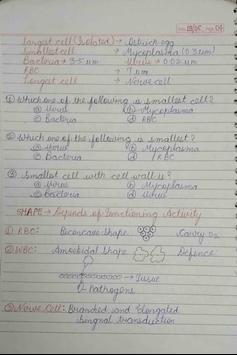 Largest cell (Isolated) → Ostrich egg
Smallest cell → Mycoplasma (0.3 μm)
Bacteria → 3-5 μm Virus → 0.02 μm
RBC → 7 μm
Longest cell → Nerve cell
① Which one of the following is smallest cell?
ⓐ Virus ⓑ Mycoplasma
ⓒ Bacteria ⓓ RBC
② Which one of the following is smallest?
ⓐ Virus ⓑ Mycoplasma
ⓒ Bacteria ⓓ RBC
③ Smallest cell with cell wall is?
ⓐ Virus ⓑ Mycoplasma
ⓒ Bacteria ⓓ
SHAPE → Depends of Functioning Activity
① RBC: Biconcave Shape Carry O2
② WBC: Amoeboidal Shape Defence
→ Tissue
→ Pathogens
③ Nerve Cell: Branched and Elongated
Singnal transduction